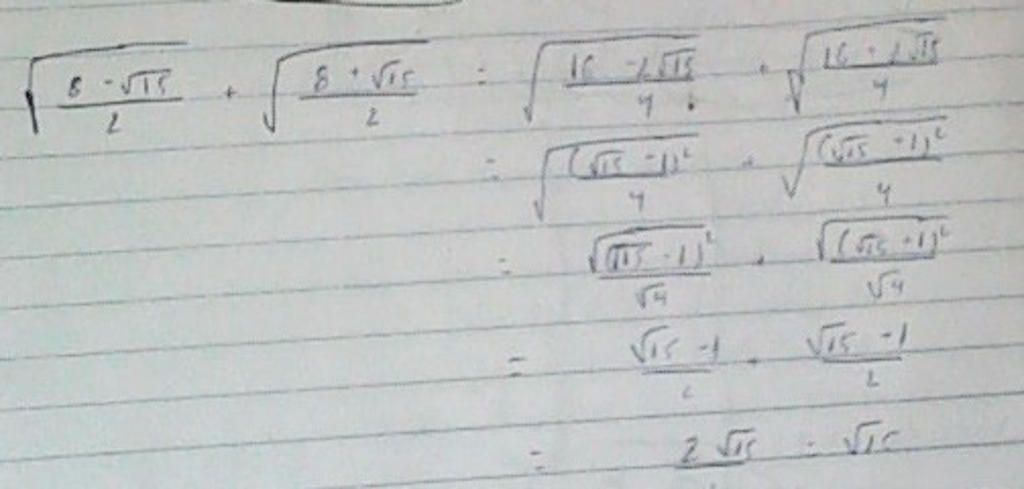 √((8 - √15)/2) + √((8 + √15)/2) = √((16 - 2√15)/4) + √((16 + 2√15)/4)
= √((√15 - 1)²/4) + √((√15 + 1)²/4)
= √(√15 - 1)²/√4 + √(√15 + 1)²/√4
= (√15 - 1)/2 + (√15 + 1)/2
= 2√15 = √15